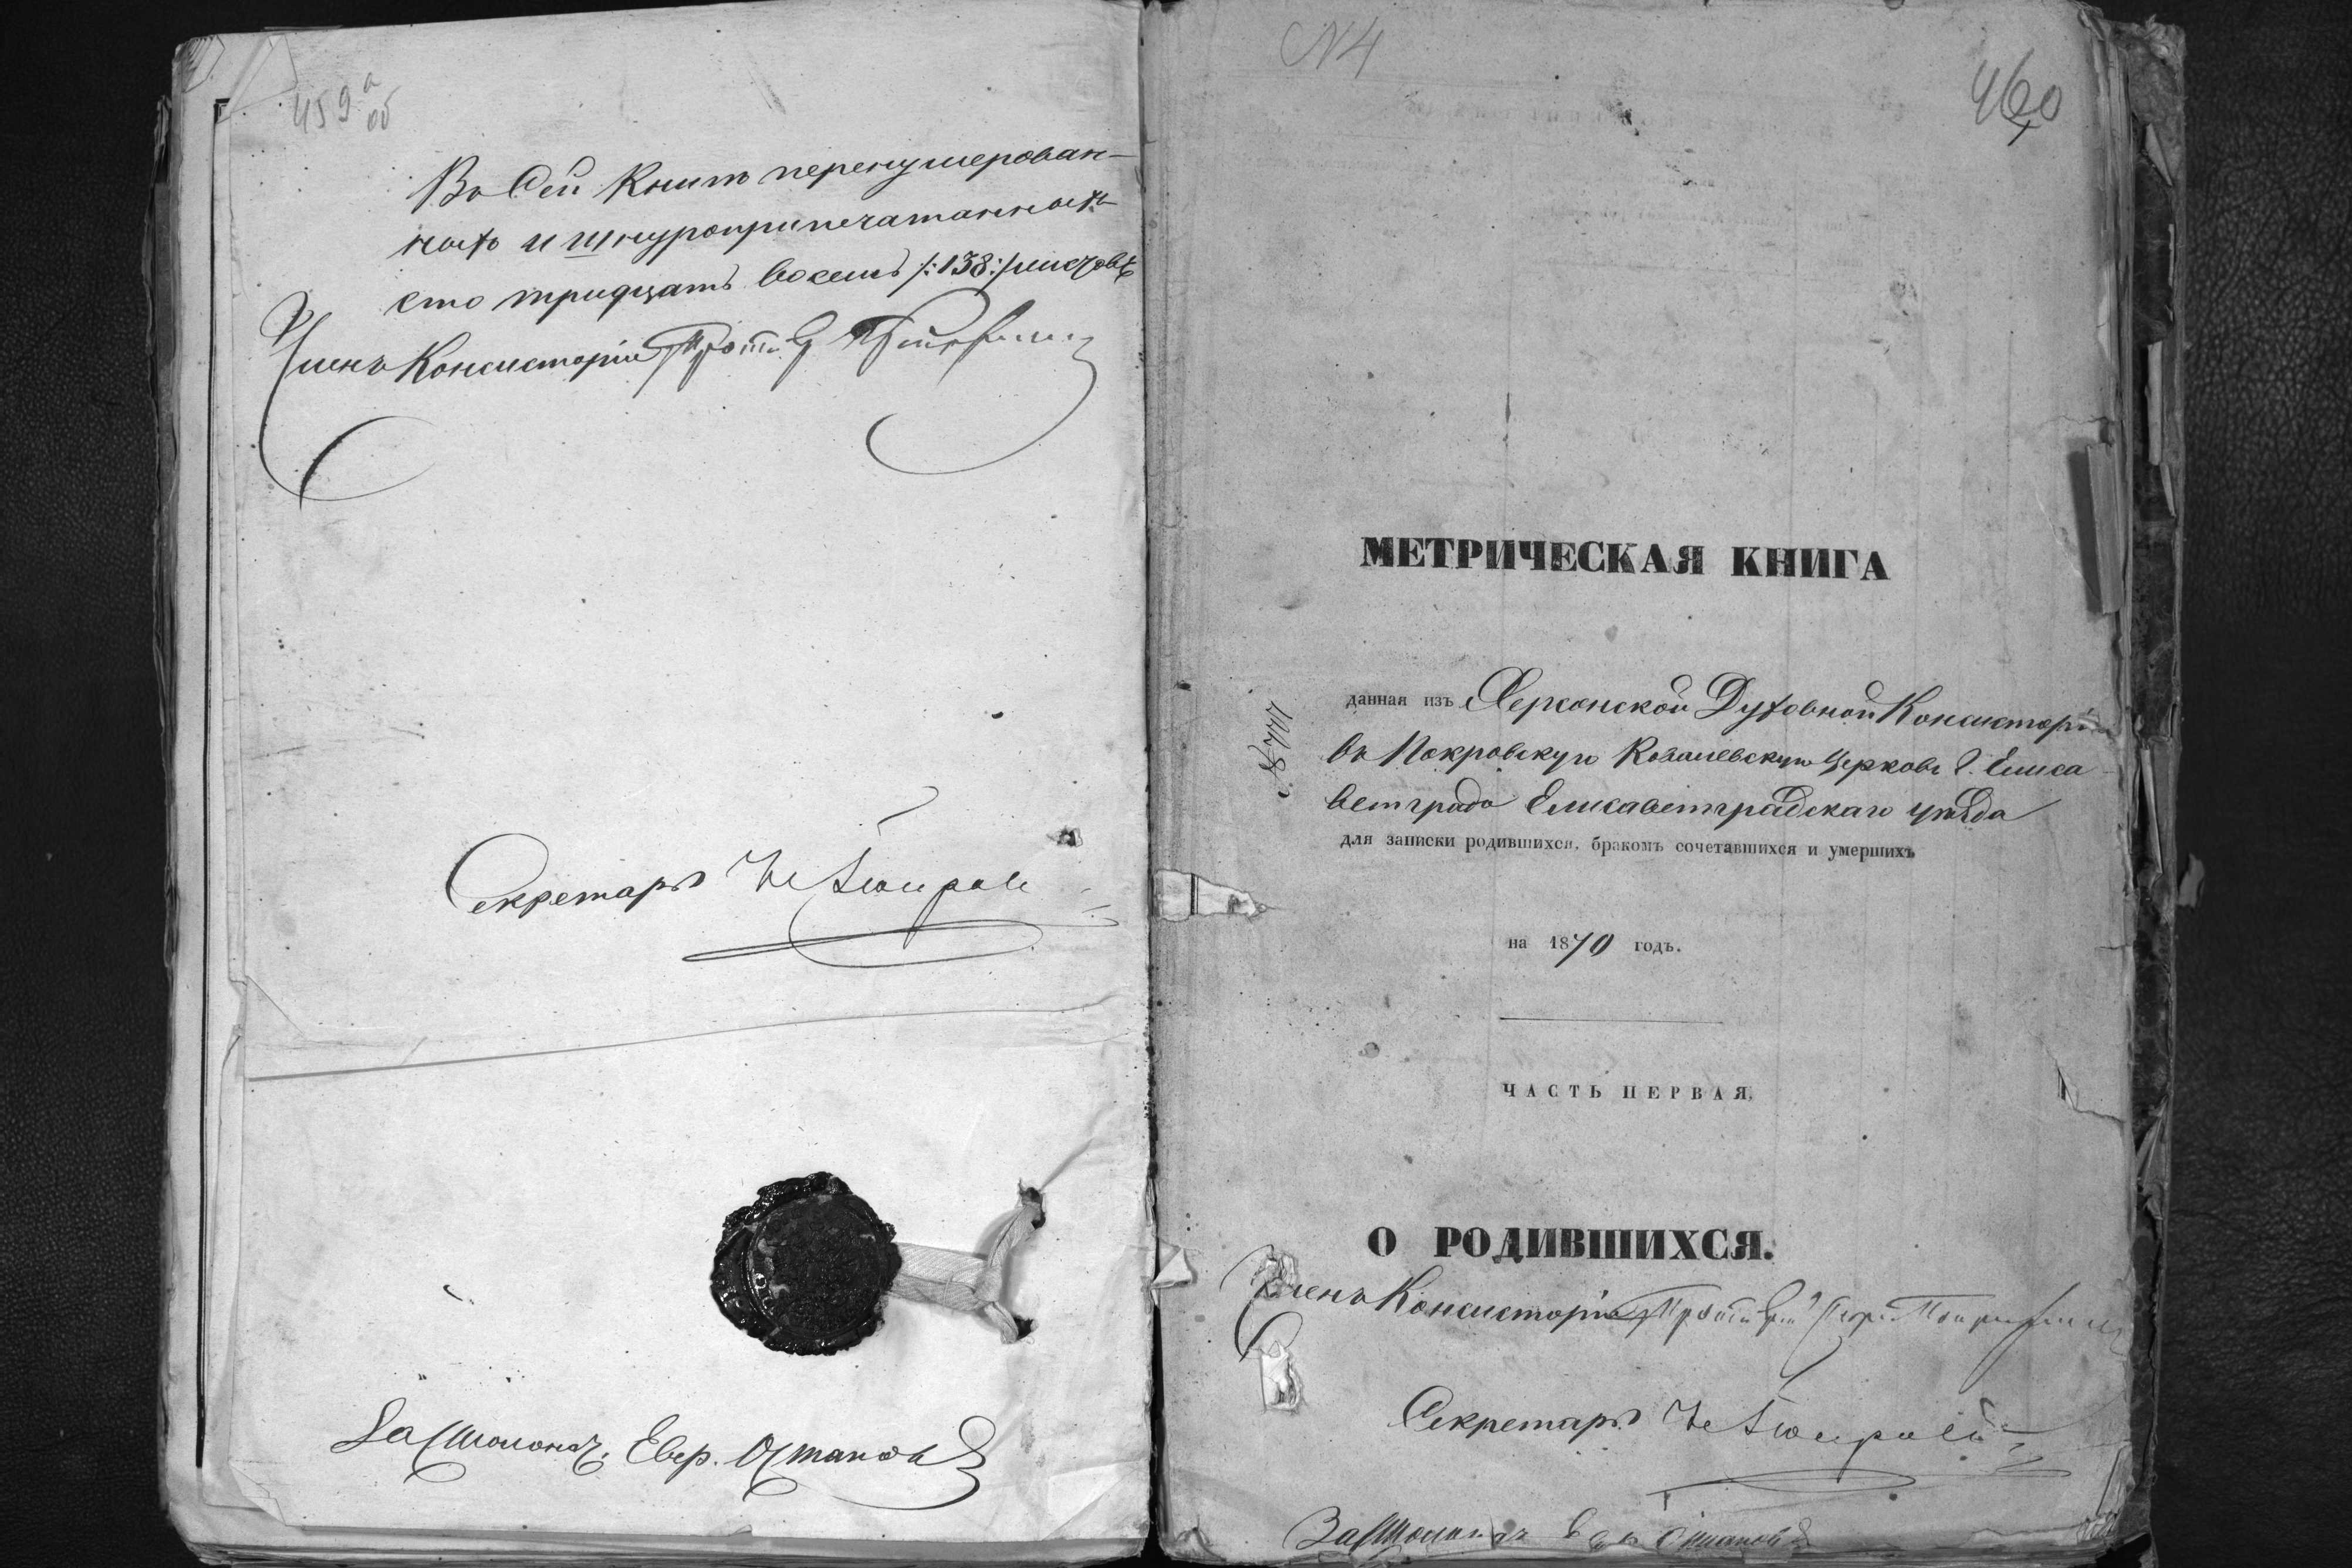 459 а об
Въ Сей Книгѣ перенумерован-
ныхъ и шнуроприпечатанныхъ
сто тридцать восемь /:138:/ листовъ
Членъ Консисторіи
Секретарь
За Столонач. Евг. Остаповъ
N4
460
МЕТРИЧЕСКАЯ КНИГА
данная изъ Херсонской Духовной Консисторіи
въ Покровскую Ковалевскую Церковь г. Елиса-
ветграда Елисаветградскаго уѣзда
для записки родившихся, бракомъ сочетавшихся и умершихъ
на 1870 годъ.
ЧАСТЬ ПЕРВАЯ,
О РОДИВШИХСЯ.
Членъ Консисторіи
Секретарь
За Столонач Остаповъ